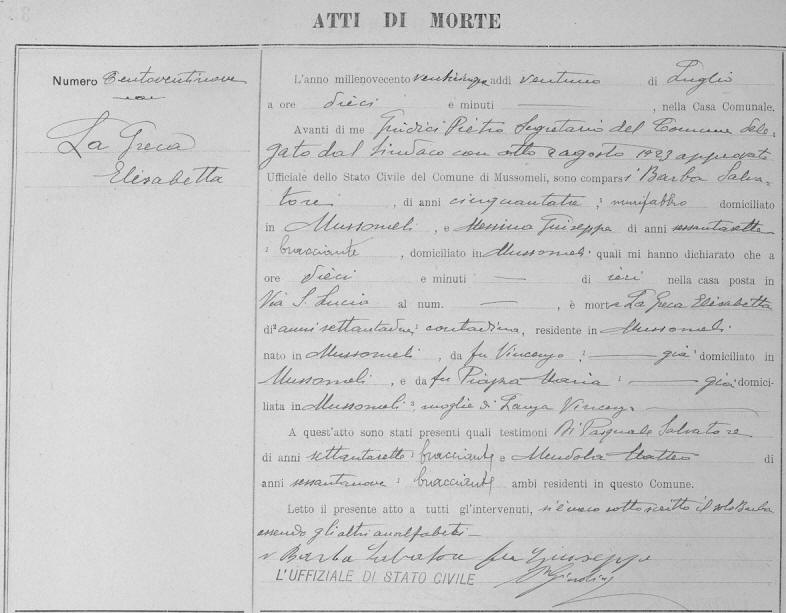 ATTI DI MORTE
Numero Centoventinove
La Greca
Elisabetta
L'anno millenovecento addì ventuno di Luglio
a ore dieci e minuti — , nella Casa Comunale.
Avanti di me Giudici Pietro Segretario del Comune Dele-
gato dal Sindaco con atto 2 agosto 1923 approvato
Ufficiale dello Stato Civile del Comune di Mussomeli, sono comparsi Barba Salva-
tore , di anni cinquantatre, domiciliato
in Mussomeli , e Messina Giuseppe di anni sessantasette
bracciante , domiciliato in Mussomeli quali mi hanno dichiarato che a
ore dieci e minuti — di ieri nella casa posta in
Via S. Lucia al num. — , è morta La Greca Elisabetta
di anni contadina, residente in Mussomeli
nato in Mussomeli , da fu Vincenzo : — già domiciliato in
Mussomeli , e da fu Piazza Maria : — già domici-
liata in Mussomeli : moglie di Vincenzo
A quest'atto sono stati presenti quali testimoni Di Pasquale Salvatore
di anni settantasette : bracciante e Mendola Matteo di
anni sessantanove : bracciante ambi residenti in questo Comune.
Letto il presente atto a tutti gl'intervenuti, si è meco sottoscritto il solo Barba
essendo gli altri analfabeti —
Barba Salvatore fu Giuseppe
L'UFFIZIALE DI STATO CIVILE